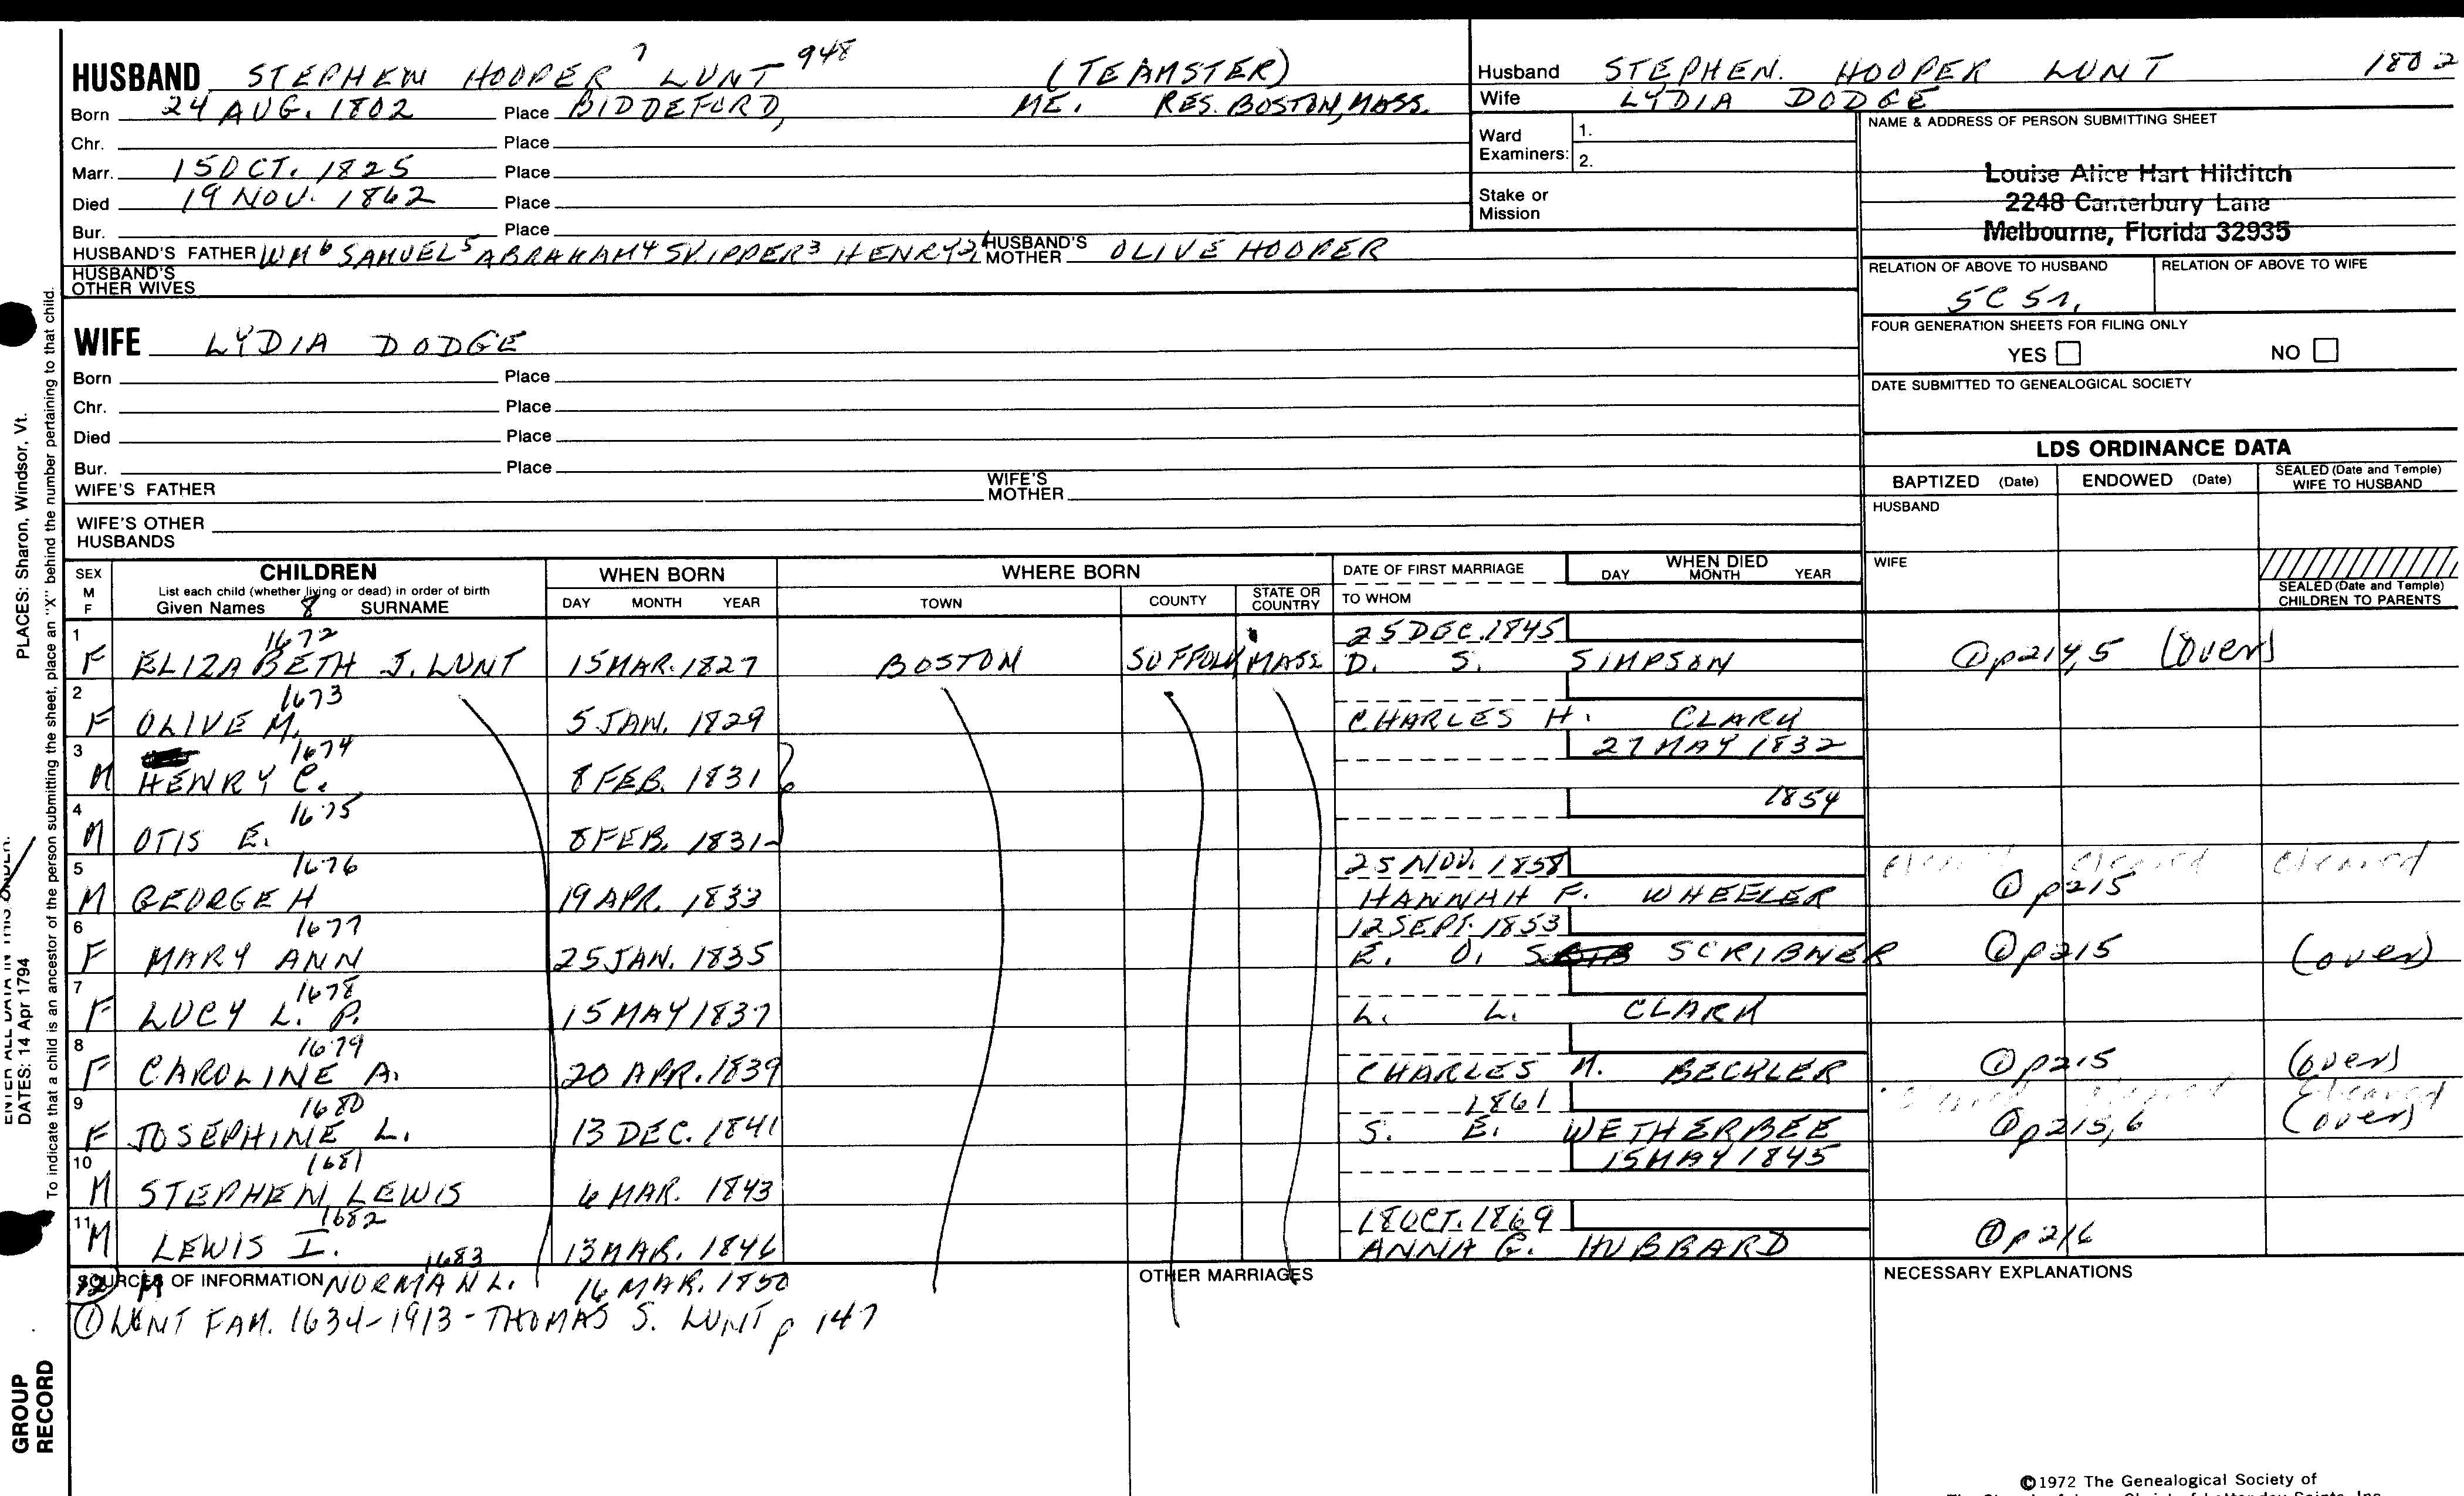 HUSBAND STEPHEN HOOPER 7 LUNT 948 (TEAMSTER)
Born 24 AUG. 1802 Place BIDDEFORD, ME. RES. BOSTON, MASS.
Chr. Place
Marr. 15 OCT. 1825 Place
Died 19 NOV. 1862 Place
Bur. Place
HUSBAND'S FATHER WM 6 SAMUEL 5 ABRAHAM 4 SKIPPER 3 HENRY 2, 1 HUSBAND'S MOTHER OLIVE HOOPER
HUSBAND'S OTHER WIVES
Husband STEPHEN. HOOPER LUNT 1802
Wife LYDIA DODGE
Ward Examiners: 1.
2.
Stake or Mission
NAME & ADDRESS OF PERSON SUBMITTING SHEET
Louise Alice Hart Hilditch
2248 Canterbury Lane
Melbourne, Florida 32935
RELATION OF ABOVE TO HUSBAND RELATION OF ABOVE TO WIFE
5C 5r.
FOUR GENERATION SHEETS FOR FILING ONLY
YES NO
DATE SUBMITTED TO GENEALOGICAL SOCIETY
WIFE LYDIA DODGE
Born Place
Chr. Place
Died Place
Bur. Place
WIFE'S FATHER WIFE'S MOTHER
WIFE'S OTHER HUSBANDS
LDS ORDINANCE DATA
BAPTIZED (Date) ENDOWED (Date) SEALED (Date and Temple) WIFE TO HUSBAND
HUSBAND
WIFE
SEALED (Date and Temple) CHILDREN TO PARENTS
SEX M F CHILDREN WHEN BORN WHERE BORN DATE OF FIRST MARRIAGE WHEN DIED
List each child (whether living or dead) in order of birth
Given Names 8 SURNAME DAY MONTH YEAR TOWN COUNTY STATE OR COUNTRY TO WHOM DAY MONTH YEAR
1 1672 25 DEC. 1845
F ELIZABETH J. LUNT 15 MAR. 1827 BOSTON SUFFOLK MASS D. S. SIMPSON ① p214,5 (over)
2 1673
F OLIVE M. 5 JAN. 1829 CHARLES H. CLARK
3 1674 27 MAY 1832
M HENRY C. 8 FEB. 1831
4 1675 1854
M OTIS E. 8 FEB. 1831
5 1676 25 NOV. 1858 cleared cleared cleared
M GEORGE H 19 APR. 1833 HANNAH F. WHEELER ① p215
6 1677 12 SEPT. 1853
F MARY ANN 25 JAN. 1835 E. O. SCRIBNER ① p215 (over)
7 1678
F LUCY L. P. 15 MAY 1837 L. L. CLARK
8 1679
F CAROLINE A. 20 APR. 1839 CHARLES M. BECKLER ① p215 (over)
9 1680 1861 cleared
F JOSEPHINE L. 13 DEC. 1841 S. E. WETHERBEE ① p215,6 (over)
10 1681 15 MAY 1845
M STEPHEN LEWIS 6 MAR. 1843
11 1682 18 OCT. 1869
M LEWIS I. 13 MAR. 1846 ANNA G. HUBBARD ① p216
1683
12 M NORMAN L. 16 MAR. 1850
SOURCES OF INFORMATION OTHER MARRIAGES NECESSARY EXPLANATIONS
① LUNT FAM. 1634-1913 - THOMAS S. LUNT p 147
PLACES: Sharon, Windsor, Vt.
ENTER ALL DATA IN THIS ORDER:
DATES: 14 Apr 1794
To indicate that a child is an ancestor of the person submitting the sheet, place an "X" behind the number pertaining to that child.
GROUP
RECORD
©1972 The Genealogical Society of